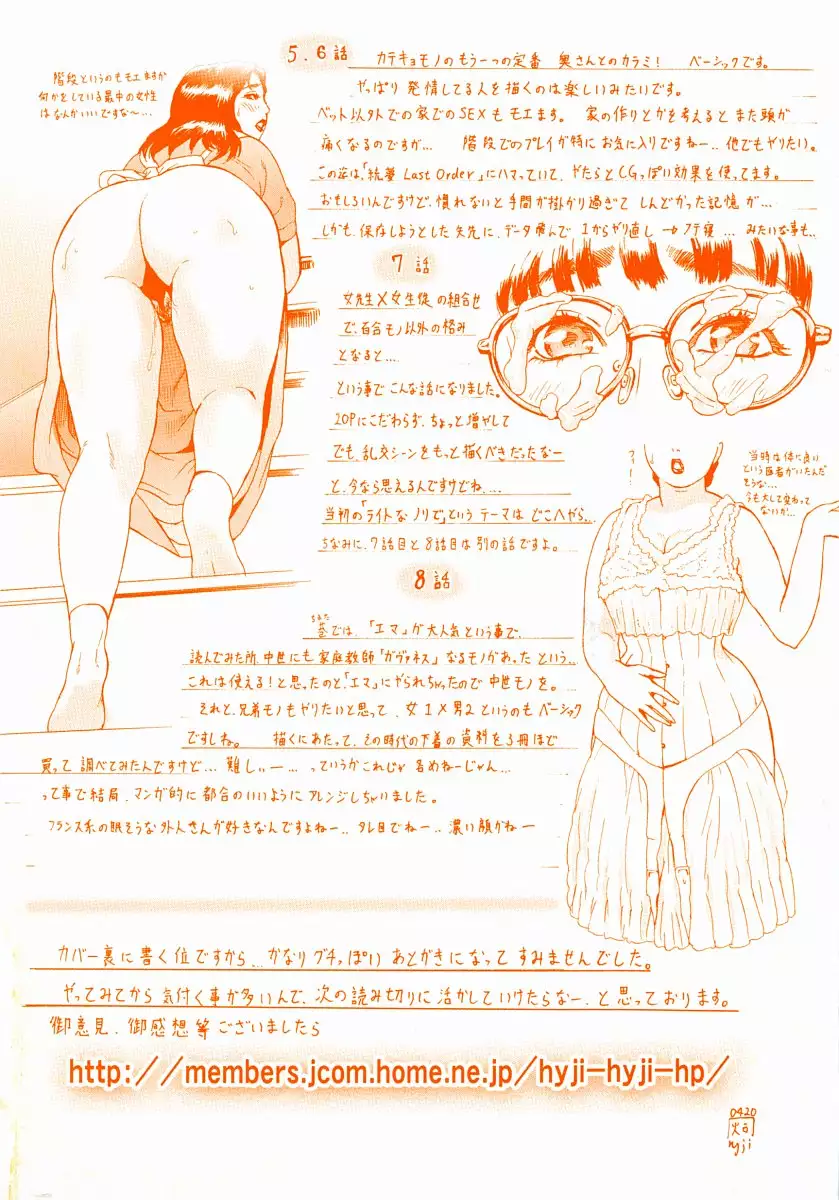 階段というのもモエますが
何かをしている最中の女性
はなんかいいですな〜…
5.6話
カテキョモノのもう一つの定番 奥さんとのカラミ! ベーシックです。
やっぱり 発情してる人を描くのは楽しいみたいです。
ベット以外での家でのSEXも モエます。 家の作りとかを考えると また頭が
痛くなるのですが… 階段でのプレイが特にお気に入りですねー.. 他でもヤリたい。
この姿は「統夢 Last Order」にハマっていて、ヤたらとCGっぽい効果を使ってます。
おもしろいんですけど、慣れないと手間が掛かり過ぎて しんどかった記憶が…
しかも、保存しようとした矢先に、データ飛んで 1からヤリ直し → フテ寝 … みたいな事も、
7話
女先生×女生徒の組合せ
で、百合モノ以外の格み
となると…
という事で こんな話になりました。
20Pにこだわらず、ちょっと増ヤして
でも、乱交シーンをもっと描くべきだったなー
と、今なら思えるんですけどね、…
当初の「ライトなノリで」というテーマは どこへやら..
ちなみに、7話目と8話目は別の話ですよ。
?
!
当時は体に良い
という医者がいたんだ
そうな…
今も大して変わって
ないか…
8話
ちまた
巷では、「エマ」が大人気という事で、
読んでみた所、中世にも家庭教師「ガヴァネス」なるモノがあった という..
これは使える! と思ったのと、「エマ」にヤられちゃったので中世モノを。
それと、兄弟モノもヤリたいと思って、女1×男2というのもベーシック
ですしね。 描くにあたって、その時代の下着の資料を3冊ほど
買って 調べてみたんですけど… 難しぃー… っていうかこれじゃ 名めねーじゃん…
って事で結局、マンガ的に都合のいいように アレンジしちゃいました。
フランス系の眠そうな外人さんが好きなんですよねー.. タレ目でねー.. 濃い顔がねー
カバー裏に書く位ですから… かなりグチっぽい あとがきになって すみませんでした。
やってみてから 気付く事が多いんで、次の読み切りに活かしていけたらなー、と思っております。
御意見、御感想等ございましたら
http://members.jcom.home.ne.jp/hyji-hyji-hp/
0420
hyji